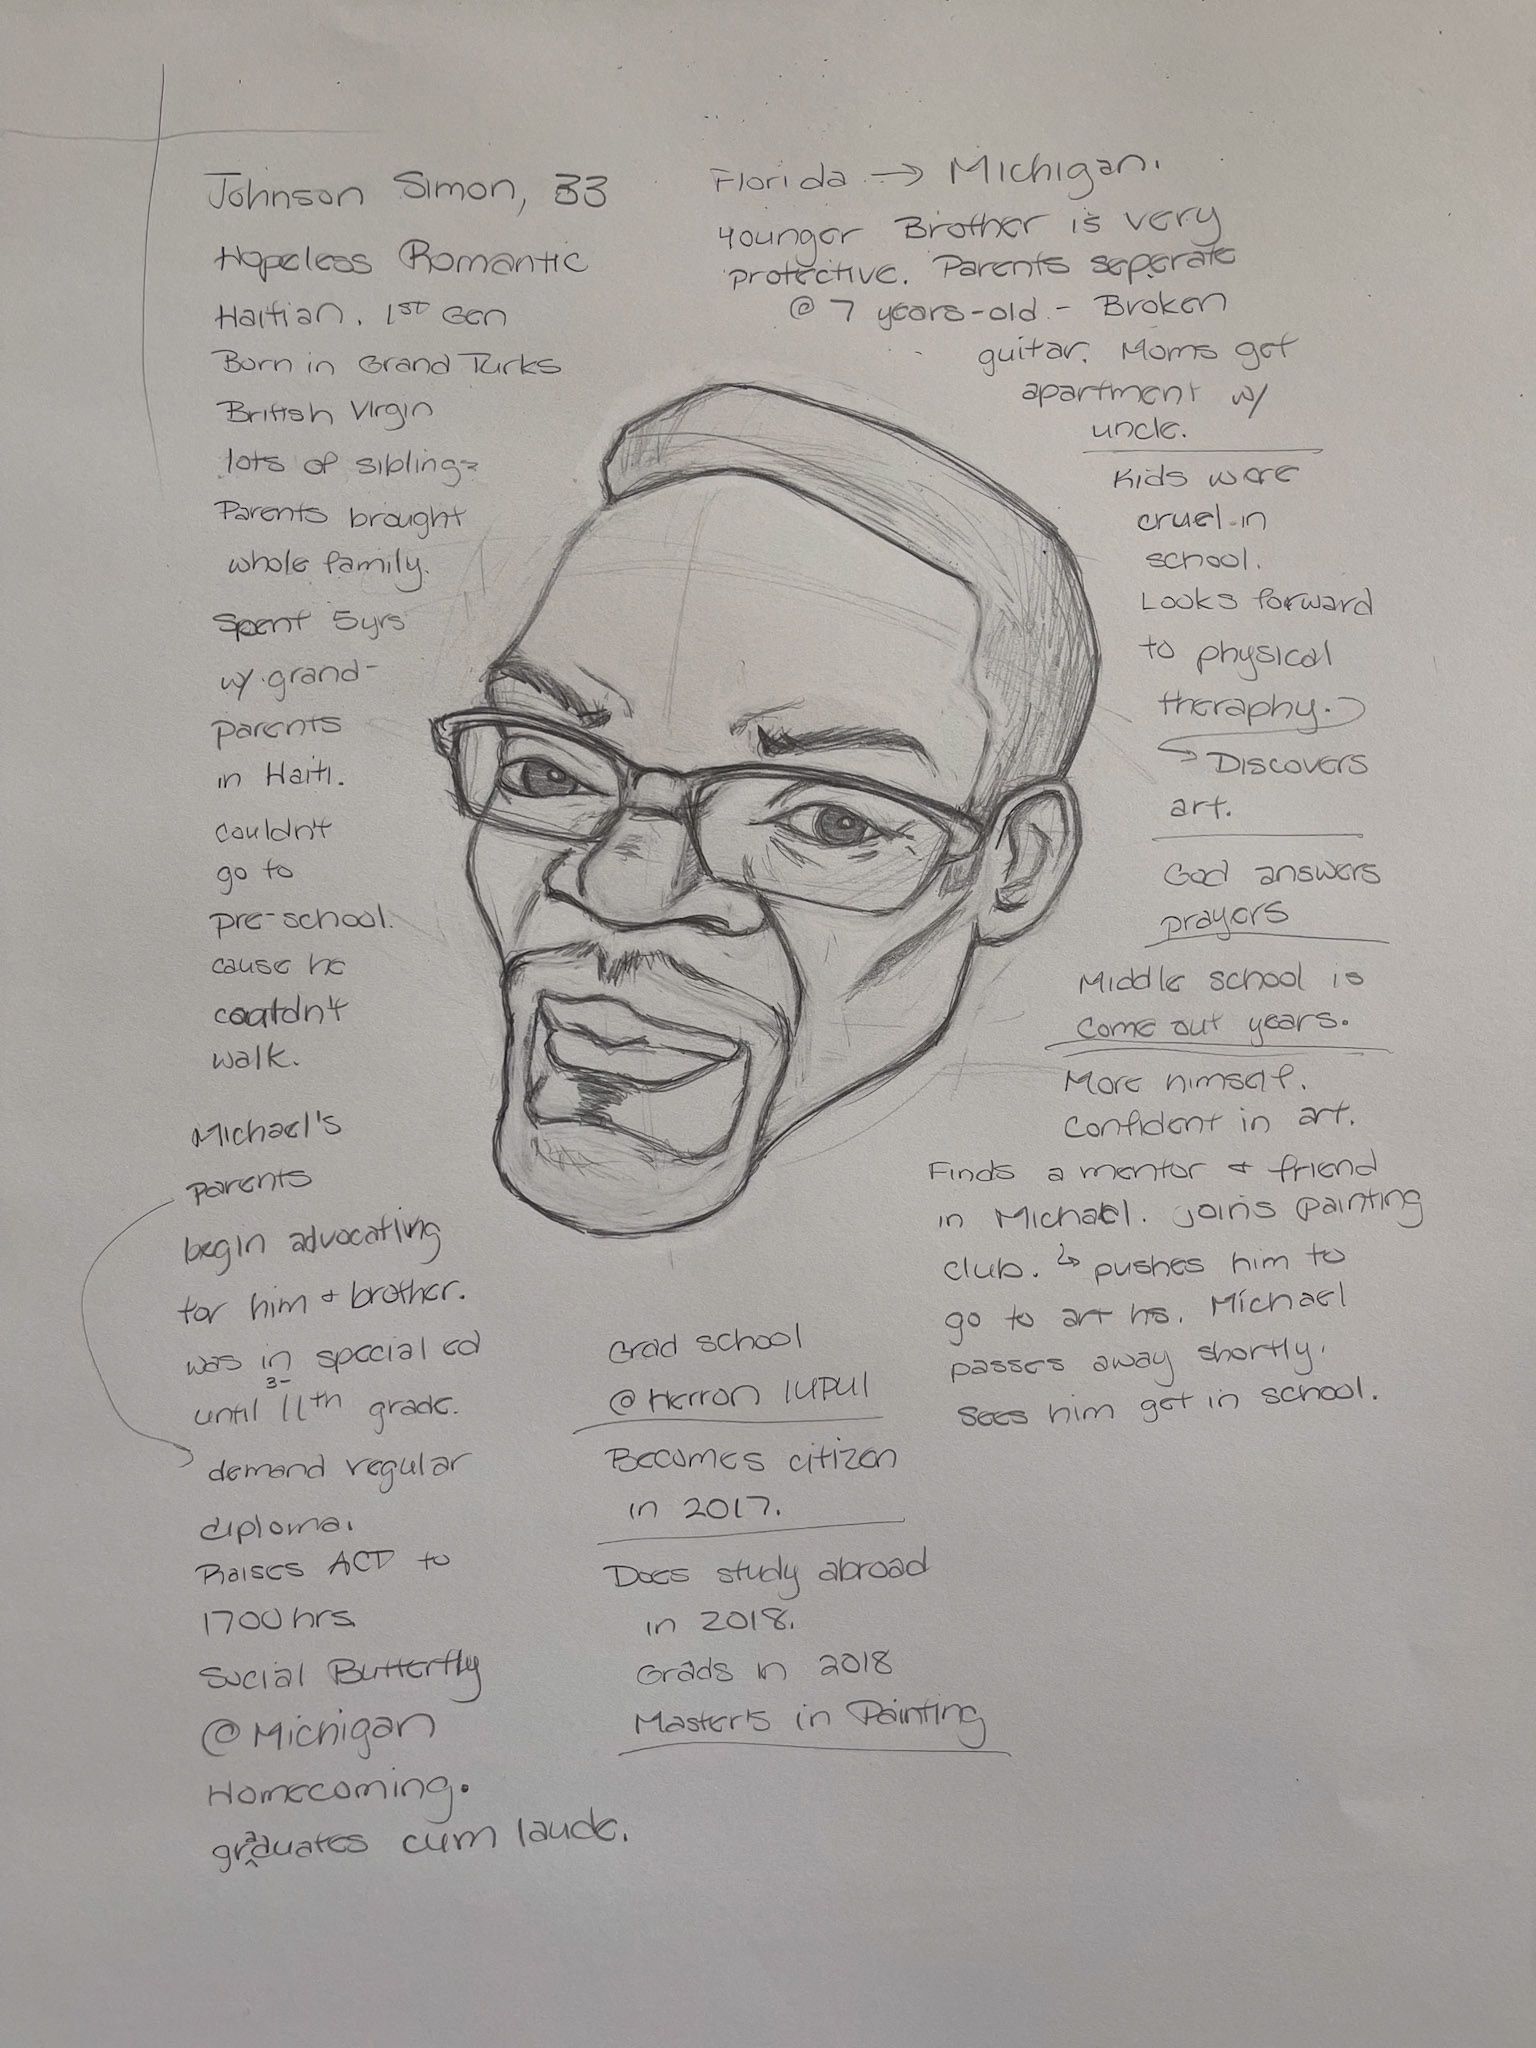 Johnson Simon, 33
Hopeless Romantic
Haitian. 1st Gen
Born in Grand Turks
British Virgin
lots of siblings
Parents brought
whole family.
Spent 5yrs
w/ grand-
parents
in Haiti.
couldn't
go to
pre-school.
cause he
couldn't
walk.
Florida → Michigan.
younger Brother is very
protective. Parents seperate
@ 7 years-old - Broken
guitar. Moms get
apartment w/
uncle.
Kids were
cruel in
school.
Looks forward
to physical
theraphy.
Discovers
art.
God answers
prayers
Middle school is
come out years.
More himself.
Confident in art.
Finds a mentor + friend
in Michael. joins painting
club. ↳ pushes him to
go to art hs. Michael
passes away shortly.
sees him get in school.
Michael's
parents
begin advocating
for him + brother.
was in special ed
until 3-11th grade.
demand regular
diploma.
Raises ACT to
1700 hrs
Social Butterfly
@ Michigan
Homecoming.
graduates cum laude.
Grad school
@ Herron IUPUI
Becomes citizen
in 2017.
Does study abroad
in 2018.
Grads in 2018
Master's in Painting